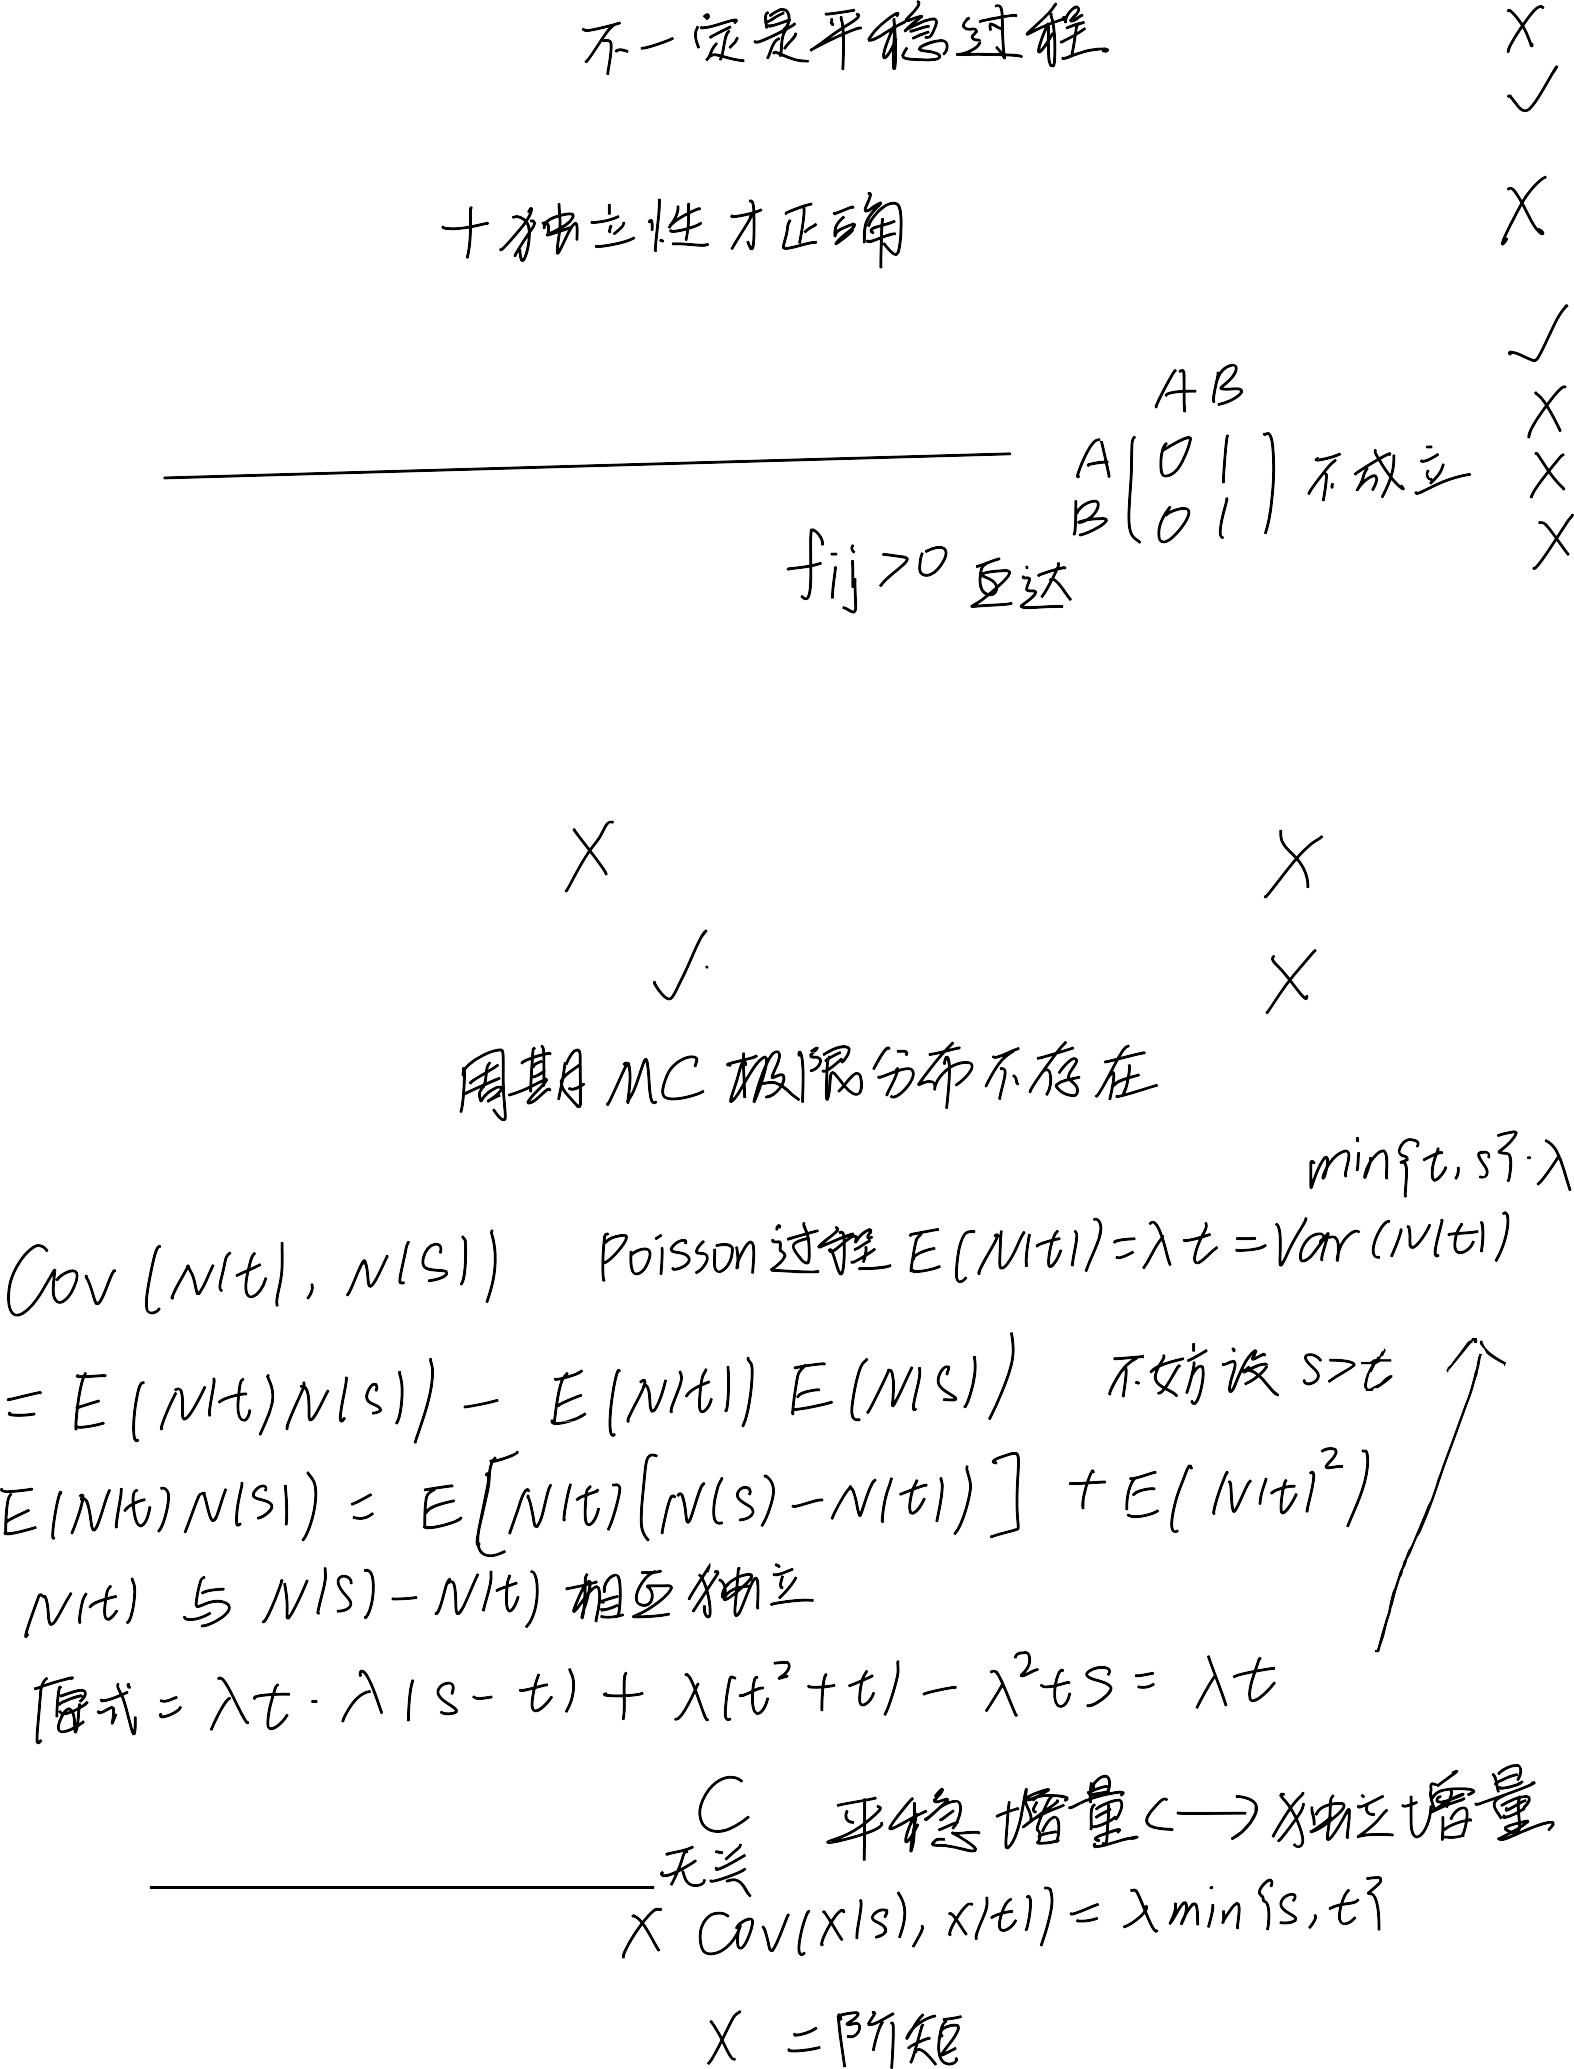 不一定是平稳过程 ×
✓
+独立性才正确 ×
✓
A B ×
A ( 0 1 ) 不成立 ×
B ( 0 1 ) ×
fij>0 互达
× ×
✓. ×
周期MC极限分布不存在
min{t,s}·λ
Cov(N(t), N(s)) Poisson过程 E(N(t))=λt=Var(N(t))
= E(N(t)N(s)) - E(N(t)) E(N(s)) 不妨设 s>t
E(N(t)N(s)) = E[N(t)(N(s)-N(t))] + E(N(t)²)
N(t) 与 N(s)-N(t) 相互独立
原式= λt·λ(s-t) + λ(t²+t) - λ²ts = λt
C 平稳增量<—>独立增量
无关
× Cov(X(s), X(t)) = λmin{s,t}
× 二阶矩